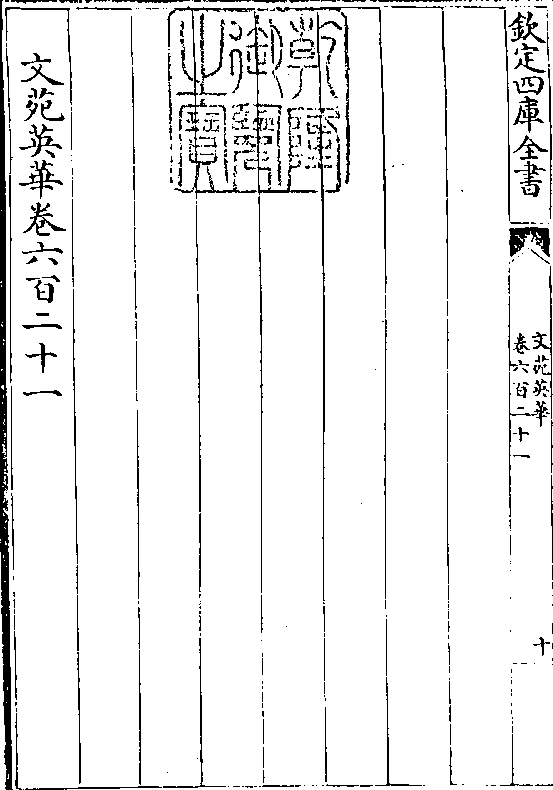 欽定四庫全書
文苑英華
卷六百二十一
十
乾隆御覽之寶
文苑英華卷六百二十一